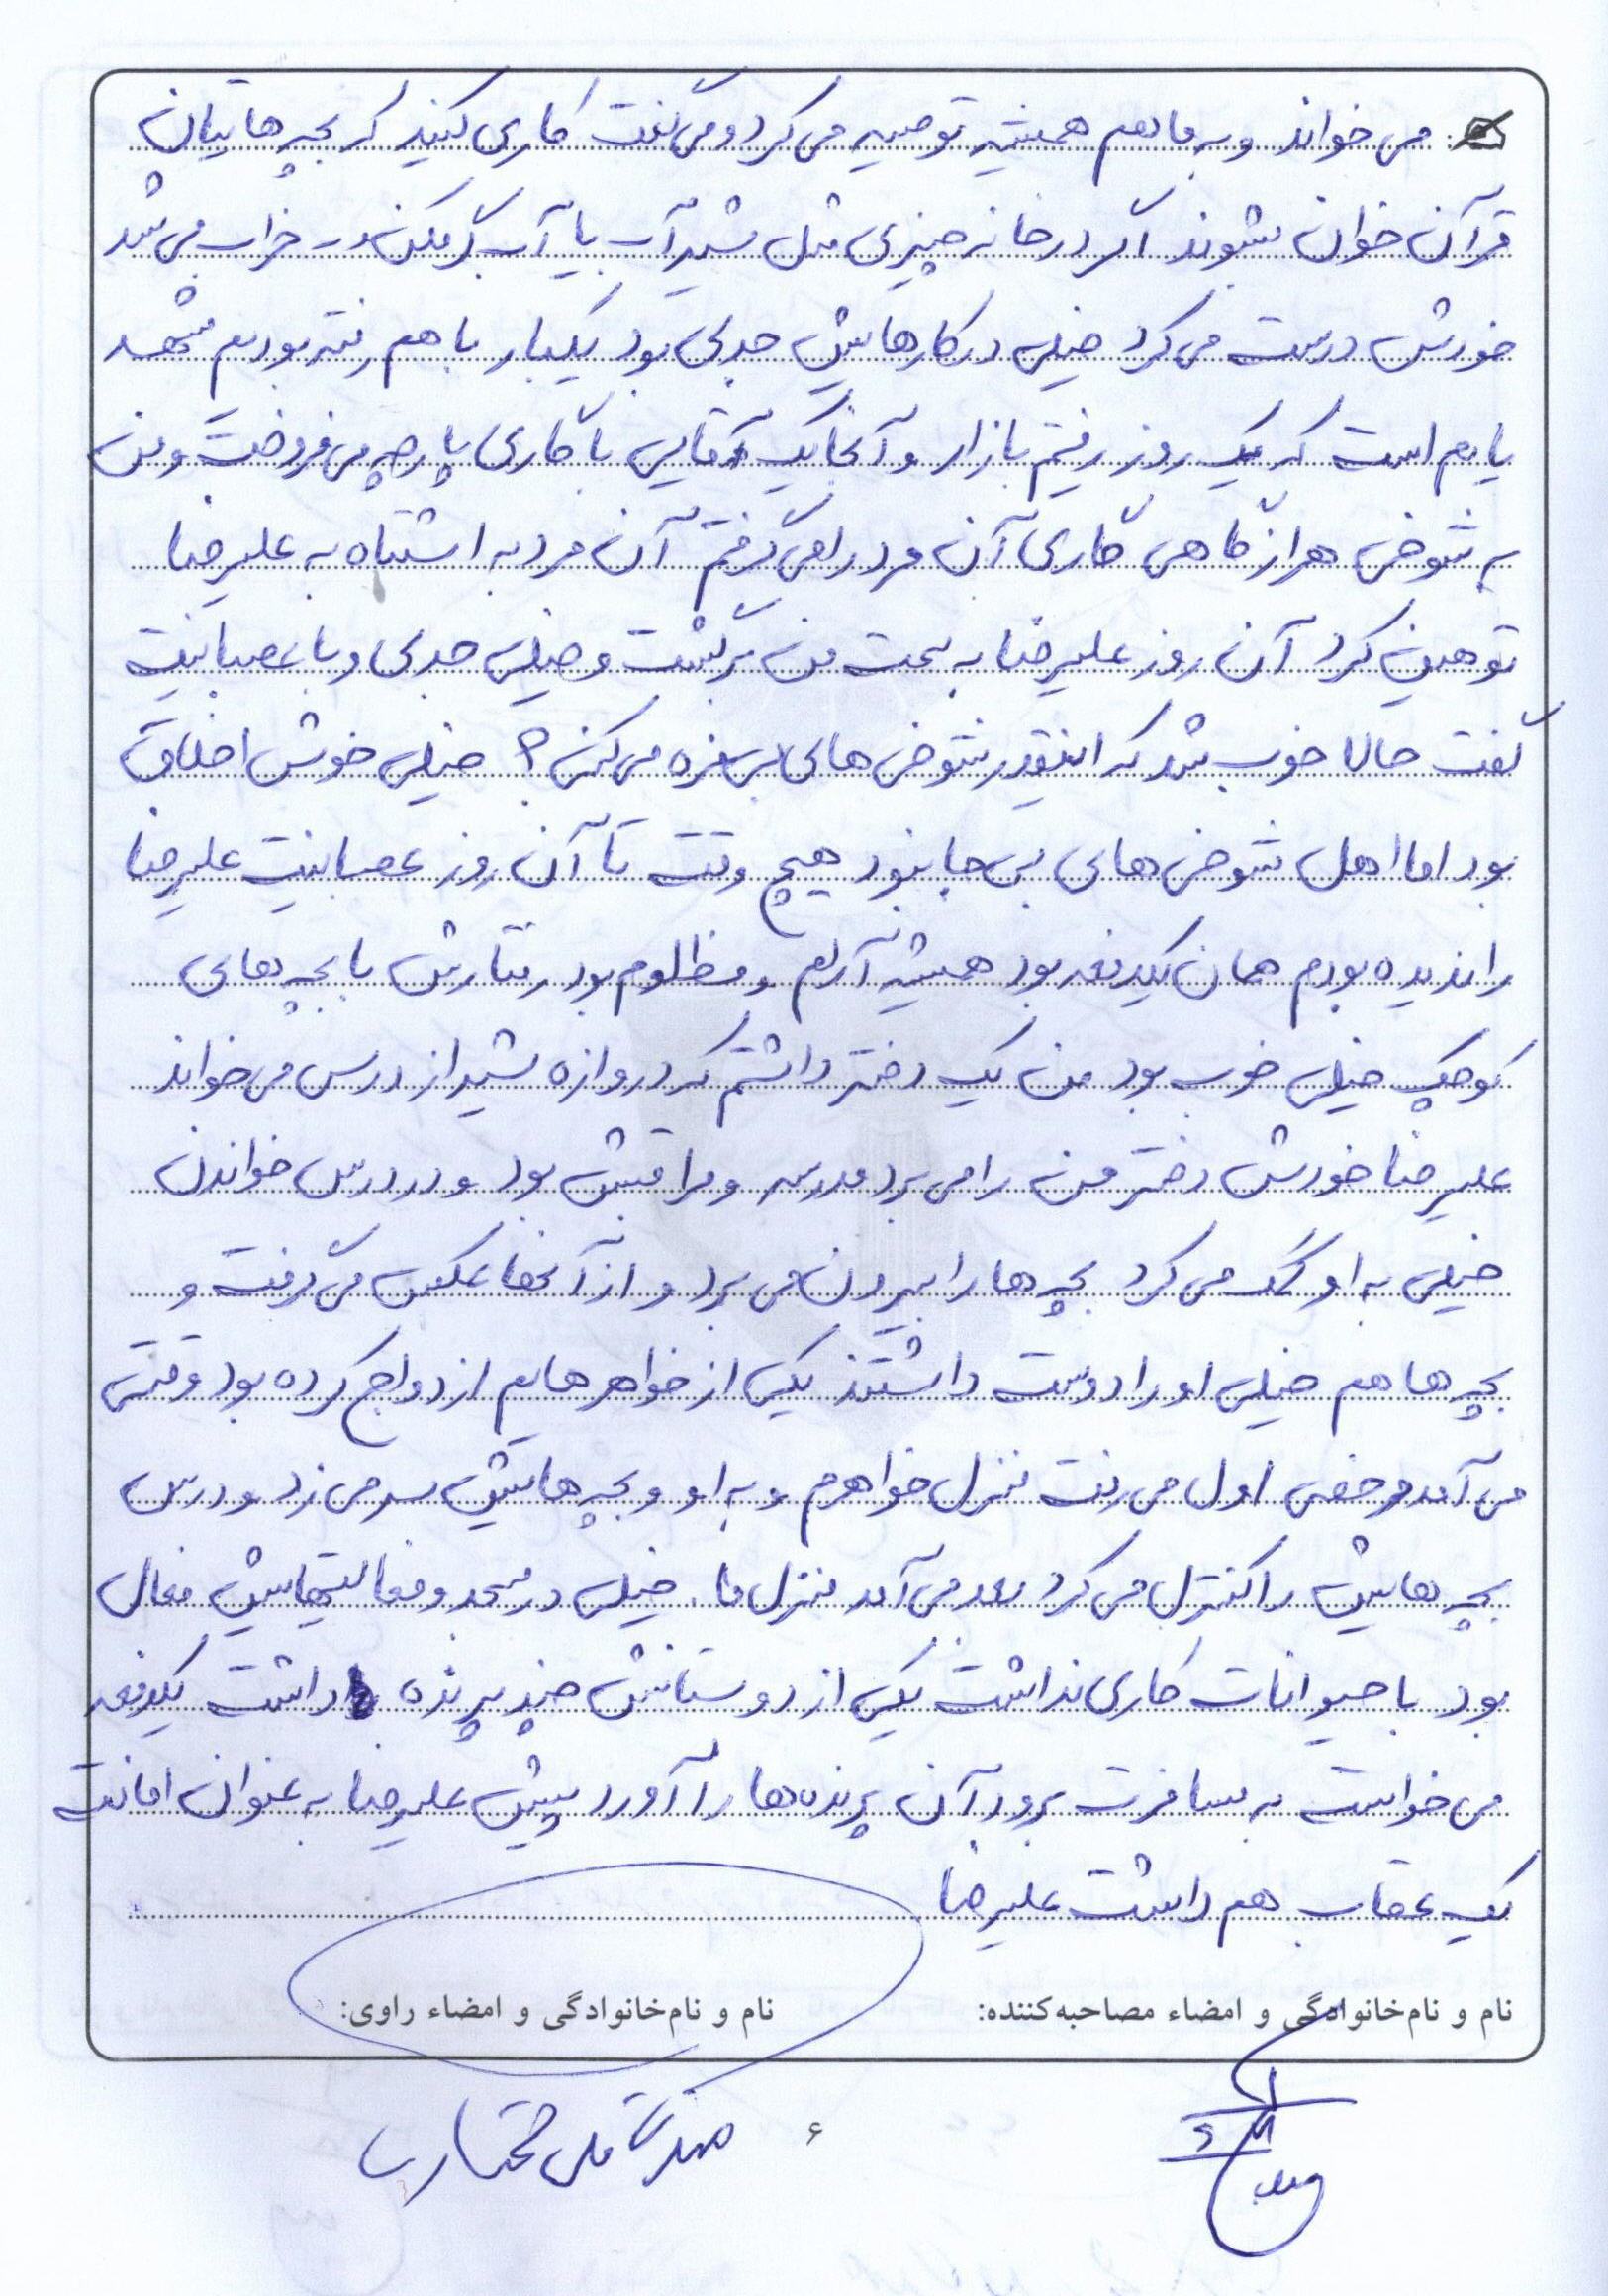 می خواند و به ما هم همیشه توصیه می کرد و می گفت کاری کنید که بچه هاتیان
قرآن خوان بشوند اگر در خانه چیزی مثل شیر آب یا آب گرمکن خراب می شد
خودش درست می کرد خیلی در کارهایش جدی بود یکبار با هم رفته بودیم مشهد
یادم است که یک روز رفتیم بازار و آنجا یک آقایی با گاری پارچه می فروخت و من
به شوخی هر از گاهی گاری آن مرد را می گرفتم آن مرد به اشتباه به علیرضا
توهین کرد آن روز علیرضا به سمت من برگشت و خیلی جدی و با عصبانیت
گفت حالا خوب شد که اینقدر شوخی های بی مزه می کنی؟ خیلی خوش اخلاق
بود اما اهل شوخی های بی جا نبود هیچ وقت تا آن روز عصبانیت علیرضا
را ندیده بودم همان یکدفعه بود همیشه آرام و مظلوم بود رفتارش با بچه های
کوچک خیلی خوب بود من یک دختر داشتم که دروازه شیراز درس می خواند
علیرضا خودش دختر من را می برد مدرسه و مراقبش بود و در درس خواندن
خیلی به او کمک می کرد بچه ها را بیرون می برد و از آنها عکس می گرفت و
بچه ها هم خیلی او را دوست داشتند یکی از خواهرهایم ازدواج کرده بود وقتی
می آمد مرخصی اول می رفت منزل خواهرم و به او و بچه هایش سر می زد و درس
بچه هایش را کنترل می کرد بعد می آمد منزل ما. خیلی در مسجد و فعالیتهایش فعال
بود با حیوانات کاری نداشت یکی از دوستانش چند پرنده داشت یکدفعه
می خواست به مسافرت برود آن پرنده ها را آورد پیش علیرضا به عنوان امانت
یک عقاب هم داشت علیرضا
نام و نام‌خانوادگی و امضاء مصاحبه‌کننده:
نام و نام‌خانوادگی و امضاء راوی:
۶